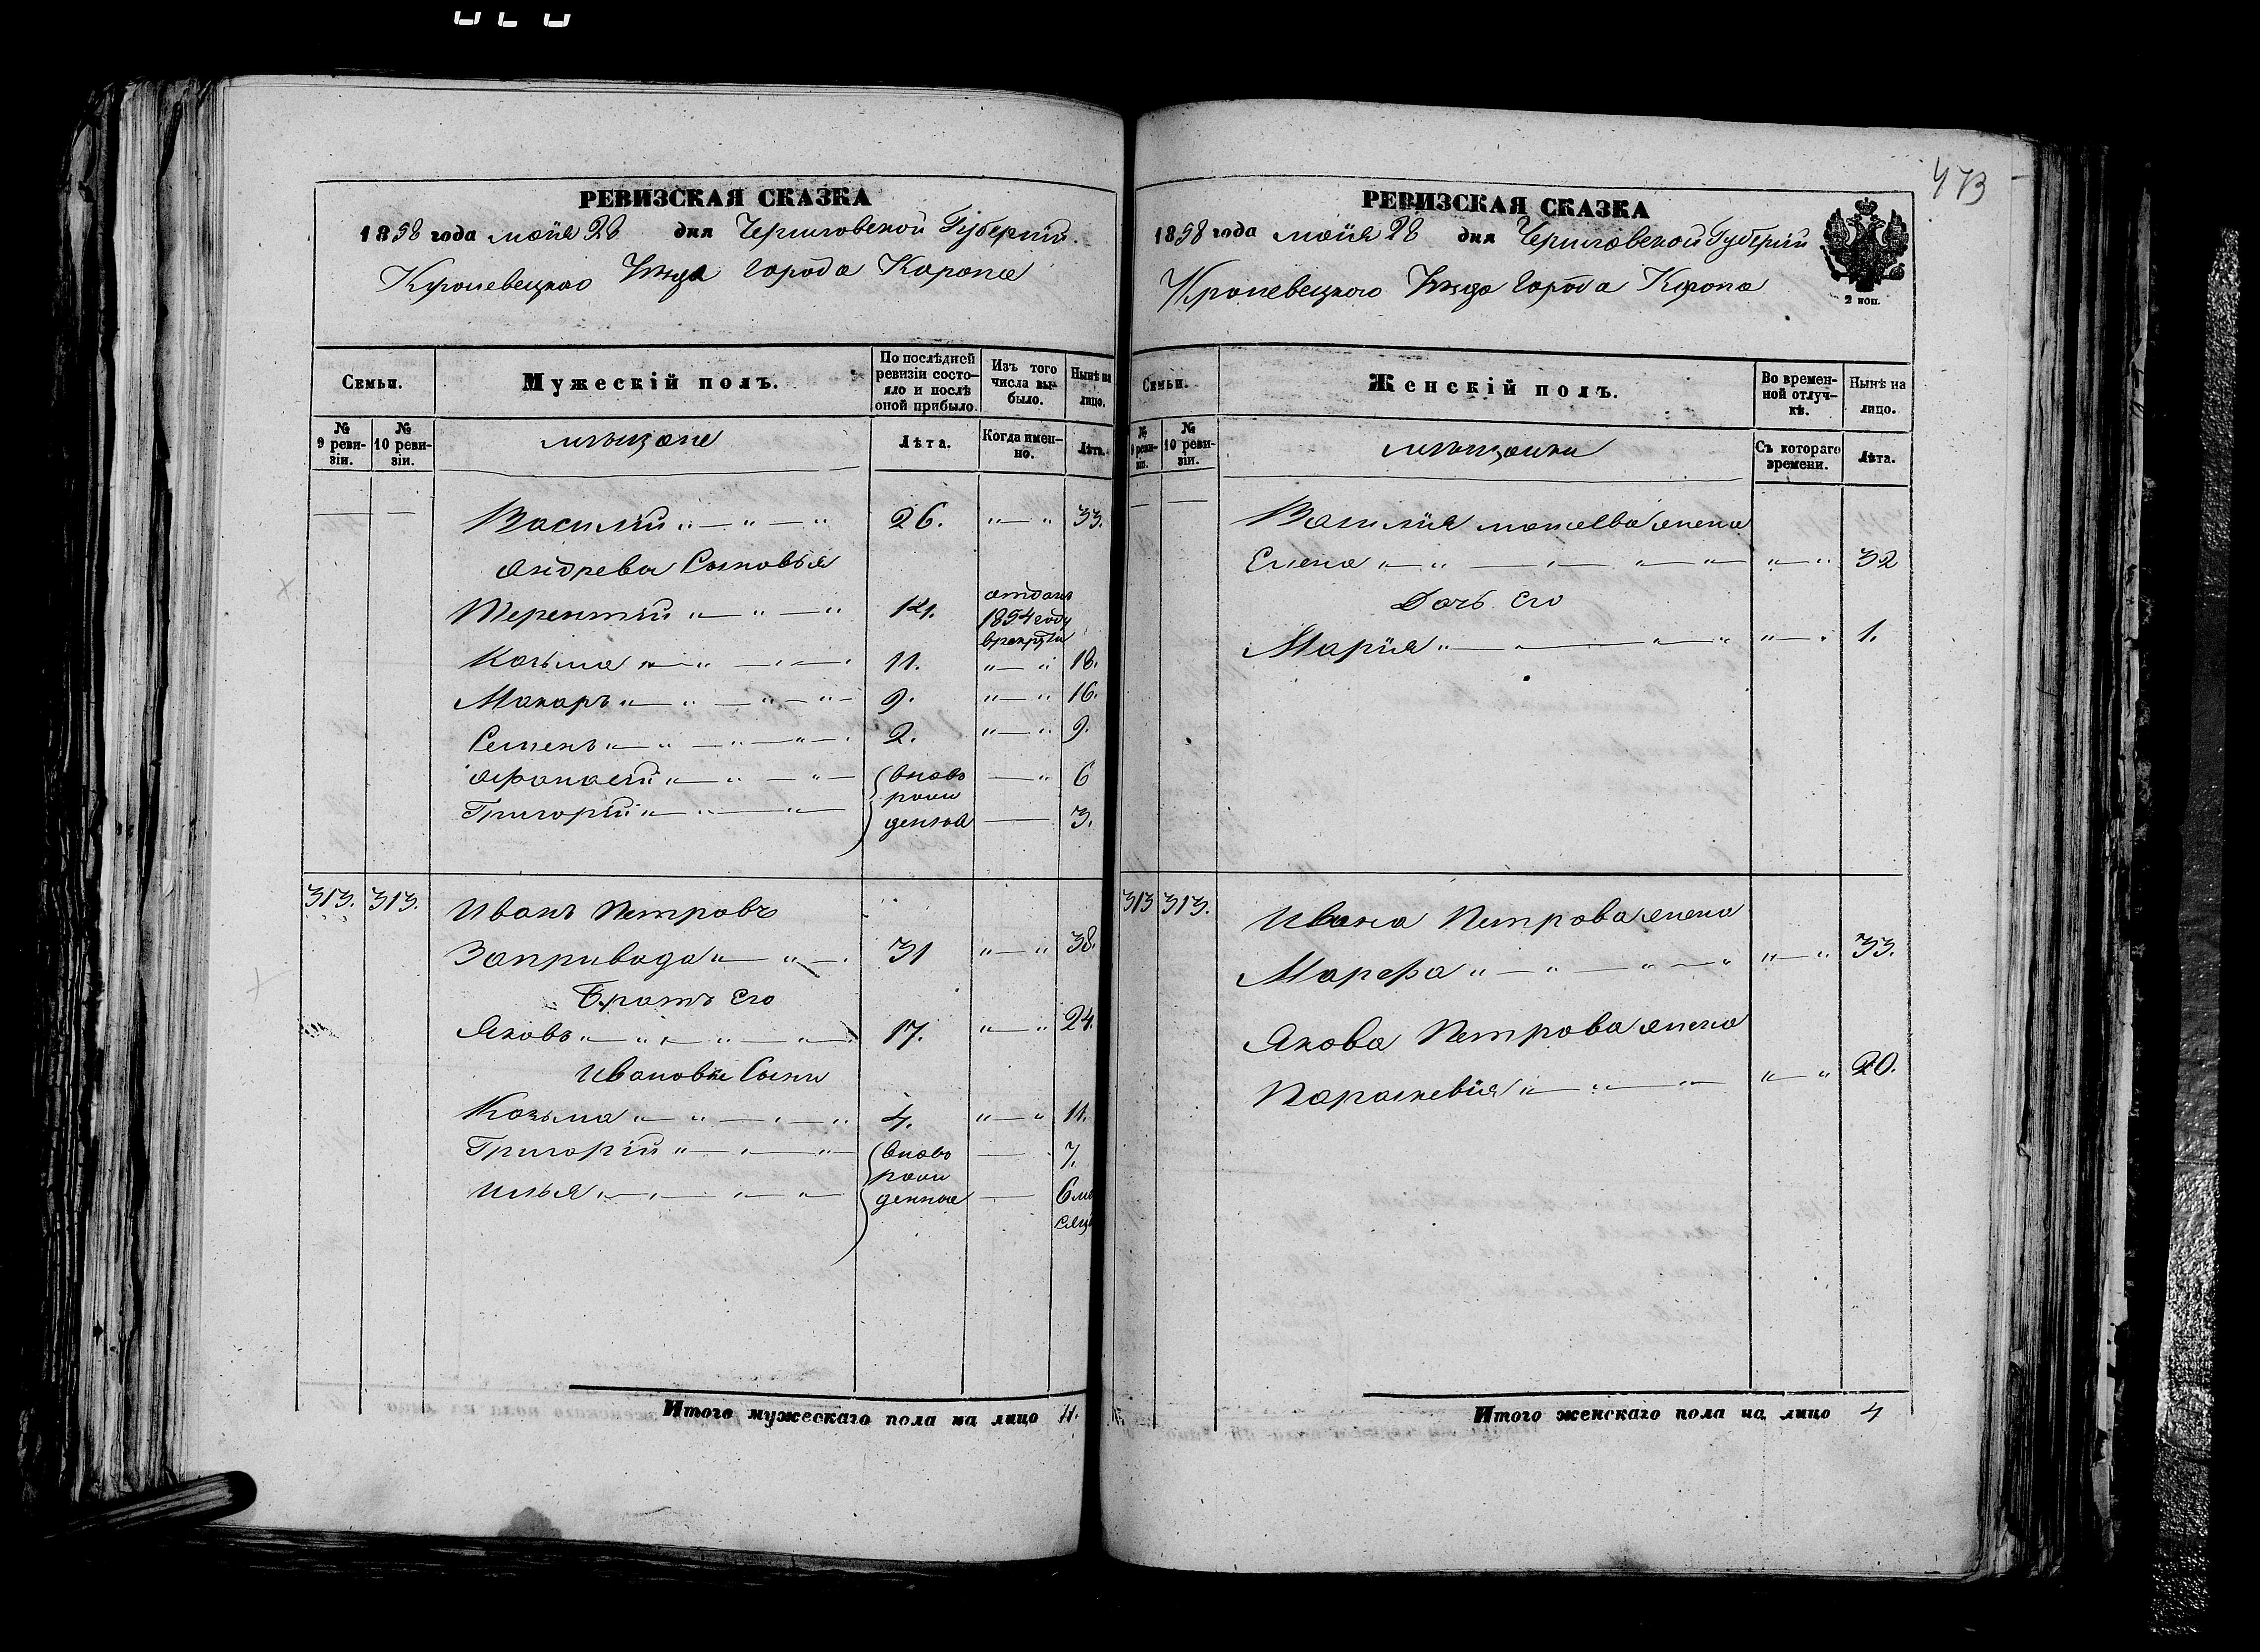 473
РЕВИЗСКАЯ СКАЗКА
1858 года мая 28 дня Черниговской Губерніи.
Кролевецкаго Уезда города Коропа
Семьи.
Мужескій полъ.
По послѣдней ревизіи состояло и послѣ оной прибыло.
Изъ того числа выбыло.
Нынѣ на лицо.
№ 9 ревизіи.
№ 10 ревизіи.
мѣщане
Лѣта.
Когда именно.
Лѣта.
— — Василій " — " — " 26. " — " 33.
Андрева Сыновья
Терентій " — " — " 14. отданъ 1854 году врекруты
Козьма " — " — " — 11. " — " 18.
Макаръ " — " — " — " — 9. " — " 16.
Семенъ " — " — " — " — 2. " — " 9.
Афанасій " — " — " — вновь рожденыя — " 6
Григорій " — " — " — — 3.
313. 313. Иванъ Петровъ
Запривода " — " — 31 " — " 38.
Братъ Его
Яковъ " — " — " — " — 17. " — " 24.
Ивановы Сыны
Козьма " — " — " — " 4. " — " 11.
Григорій " — " — " — вновь рожденные — 7.
Илья " — " — " — " — — 6 месяц
Итого мужескаго пола на лицо 11.
РЕВИЗСКАЯ СКАЗКА
1858 года мая 28 дня Черниговской Губерніи
Кролевецкого Уезда города Коропа
2 коп.
Семьи.
Женскій полъ.
Во временной отлучкѣ.
Нынѣ на лицо.
№ 9 ревизіи.
№ 10 ревизіи.
мѣщанки
Съ котораго времени.
Лѣта.
— — Василія жена
Елена " — " — " — " — " " — " 32
Дочь Его
Марія " — " — " — " " — " 1.
313 313. Ивана Петрова жена
Марфа " — " — " — " " — " 33.
Якова Петрова жена
Параскевія " — " — " — " — " 20.
Итого женскаго пола на лицо 4